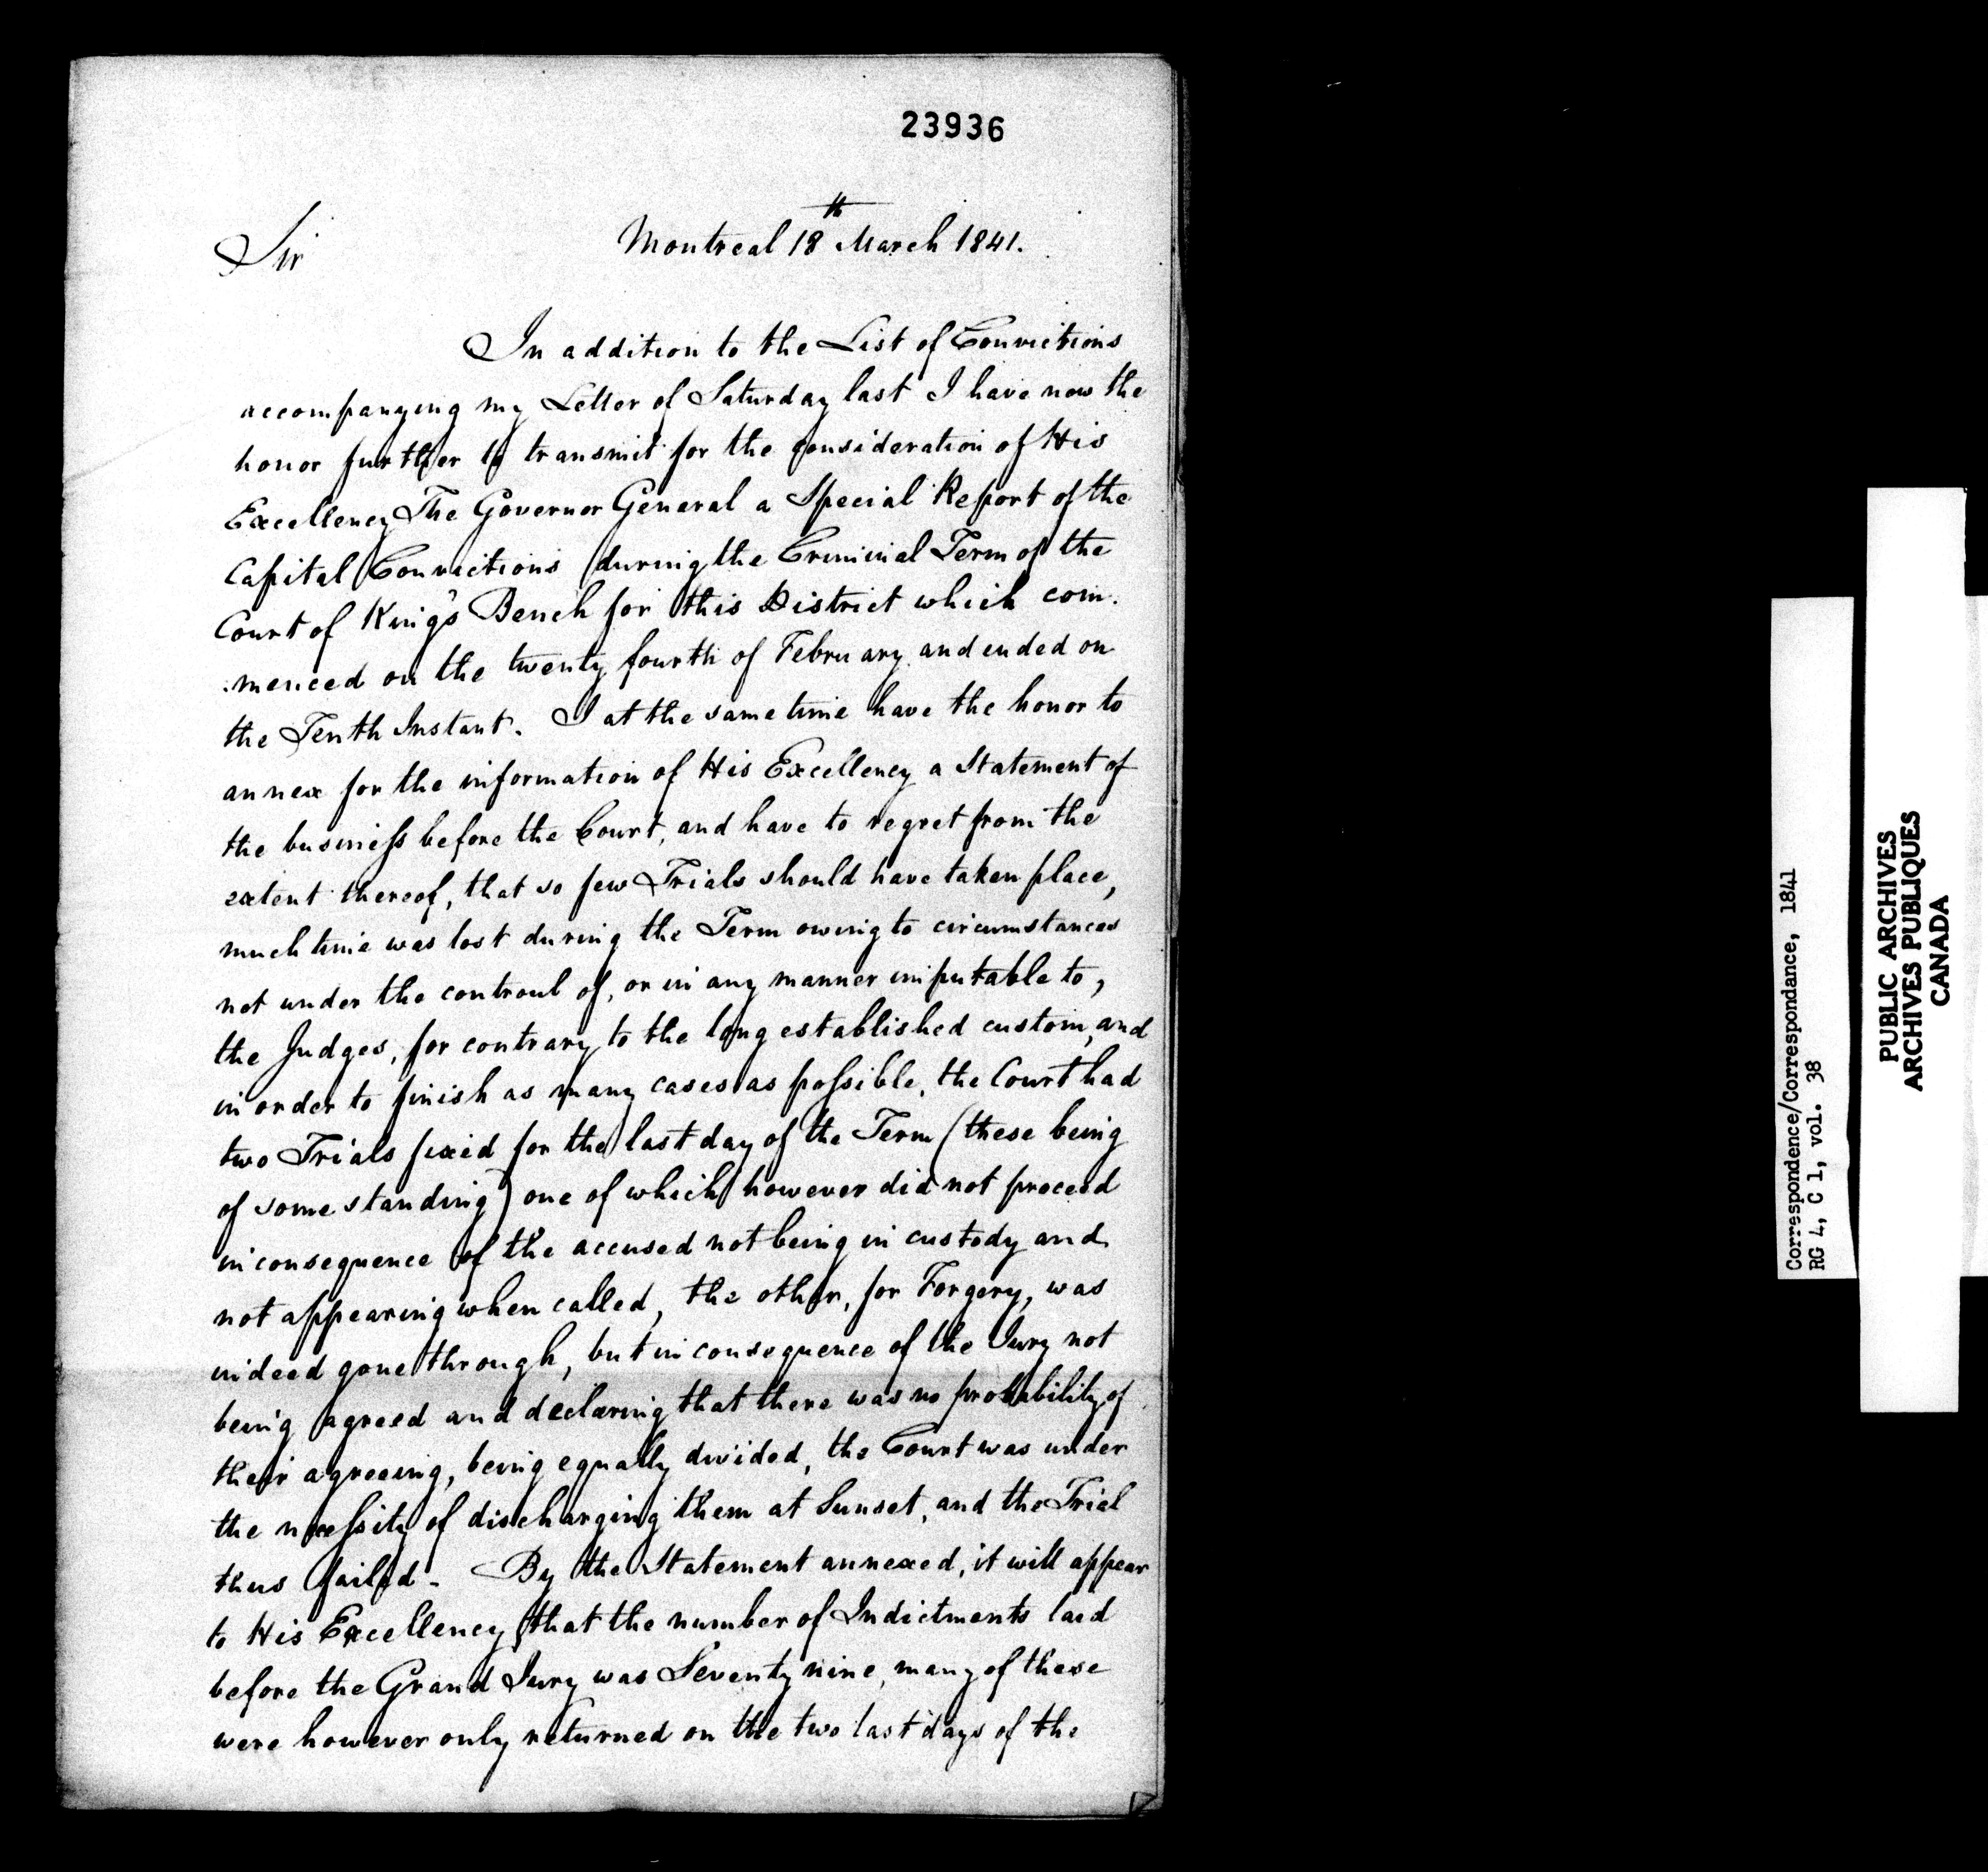 23936
Montreal 18th March 1841.
Sir
In addition to the List of Convictions
accompanying my Letter of Saturday last I have now the
honor further to transmit for the consideration of His
Excellency The Governor General a Special Report of the
Capital Convictions during the Criminal Term of the
Court of King's Bench for this District which com.
:menced on the twenty fourth of February and ended on
the Tenth Instant. I at the same time have the honor to
annex for the information of His Excellency a Statement of
the business before the Court, and have to regret from the
extent thereof, that so few Trials should have taken place,
much time was lost during the Term owing to circumstances
not under the controul of, or in any manner imputable to,
the Judges, for contrary to the long established custom, and
in order to finish as many cases as possible, the Court had
two Trials fixed for the last day of the Term (these being
of some standing) one of which however did not proceed
in consequence of the accused not being in custody and
not appearing when called, the other, for Forgery, was
indeed gone through, but in consequence of the Jury not
being agreed and declaring that there was no probability of
their agreeing, being equally divided, the Court was under
the necessity of discharging them at Sunset, and the Trial
thus failed - By the Statement annexed, it will appear
to His Excellency that the number of Indictments laid
before the Grand Jury was Seventy nine, many of these
were however only returned on the two last days of the
Correspondence/Correspondance, 1841
RG 4, C 1, vol. 38
PUBLIC ARCHIVES
ARCHIVES PUBLIQUES
CANADA